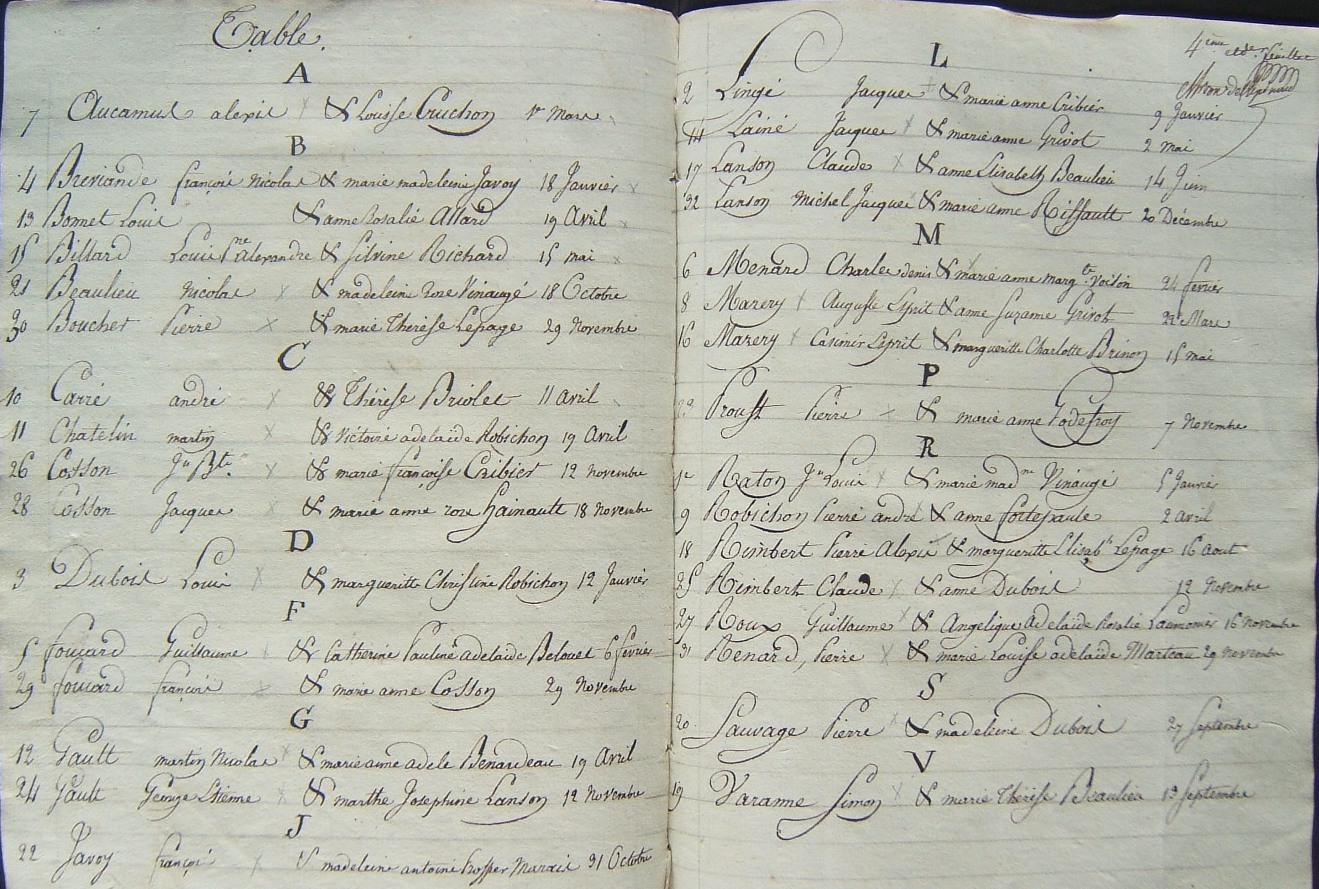 Table.
A
7 Aucamus alexis & Louise Cruchon 1er Mars
B
4 Breviande françois Nicolas & marie madeleine Javoy 18 Janvier
13 Bonnet Louis & anne Rosalie Allard 19 Avril
15 Billard Louis Pre alexandre & Silvine Richard 15 mai
21 Beaulieu Nicolas & madeleine rose Vinaugé 18 Octobre
30 Boucher Pierre & marie Therese Lepage 29 Novembre
C
10 Carré andré & Thérèse Briolet 11 avril
11 Chatelin martin & Victoire adelaïde Robichon 19 Avril
26 Cosson Jn Bte & marie françoise Cribier 12 novembre
28 Cosson Jacques & marie anne rose hainault 18 Novembre
D
3 Dubois Louis & margueritte Christine Robichon 12 Janvier
F
5 foucard Guillaume & Catherine Pauline adelaide Belouet 6 février
29 foucard françois & marie anne Cosson 29 Novembre
G
12 Gault martin Nicolas & marie anne adele Benardeau 19 Avril
24 Gault George Etienne & marthe Josephine Lanson 12 Novembre
J
22 Javoy françois & madeleine antoine Marais 31 Octobre
4ème et der feuillet
L
2 Lingé Jacques & marie anne Cribier 9 Janvier
14 Lainé Jacques & marie anne Grivot 2 mai
17 Lanson Claude & anne Elisabeth Beaulieu 14 Juin
32 Lanson Michel Jacques & marie anne Riffault 20 Décembre
M
6 Menard Charles denis & marie anne margte Voison 24 février
8 Marery Auguste Esprit & anne Suzanne Grivot 22 Mars
16 Marery Casimir Esprit & margueritte Charlotte Brinon 15 mai
P
23 Proust Pierre & marie anne Godefroy 7 Novembre
R
1er Raton Jn Louis & marie madne Vinaugé 5 Janvier
9 Robichon Pierre andré & anne fortepaule 2 avril
18 Rimbert Pierre Alexis & margueritte Elisabh Lepage 16 aout
25 Rimbert Claude & anne Dubois 12 Novembre
27 Roux Guillaume & Angelique adelaïde Rosalie Laumonier 16 Novembre
31 Renard, Pierre & marie Louise adelaïde Marteau 29 Novembre
S
20 Sauvage Pierre & madeleine Dubois 27 Septembre
V
19 Varanne Simon & marie Therese Beaulieu 13 Septembre